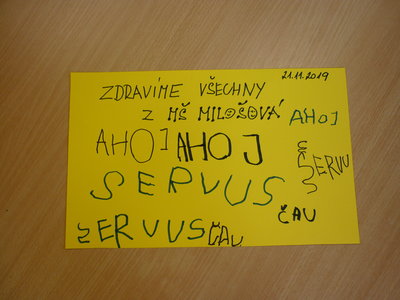 21.11.2019
ZDRAVÍME VŠECHNY
Z MŠ MILOŠOVÁ
AHOJ
AHOJ AHOJ
SERVUS
ČAU
ZERVUS ČAU